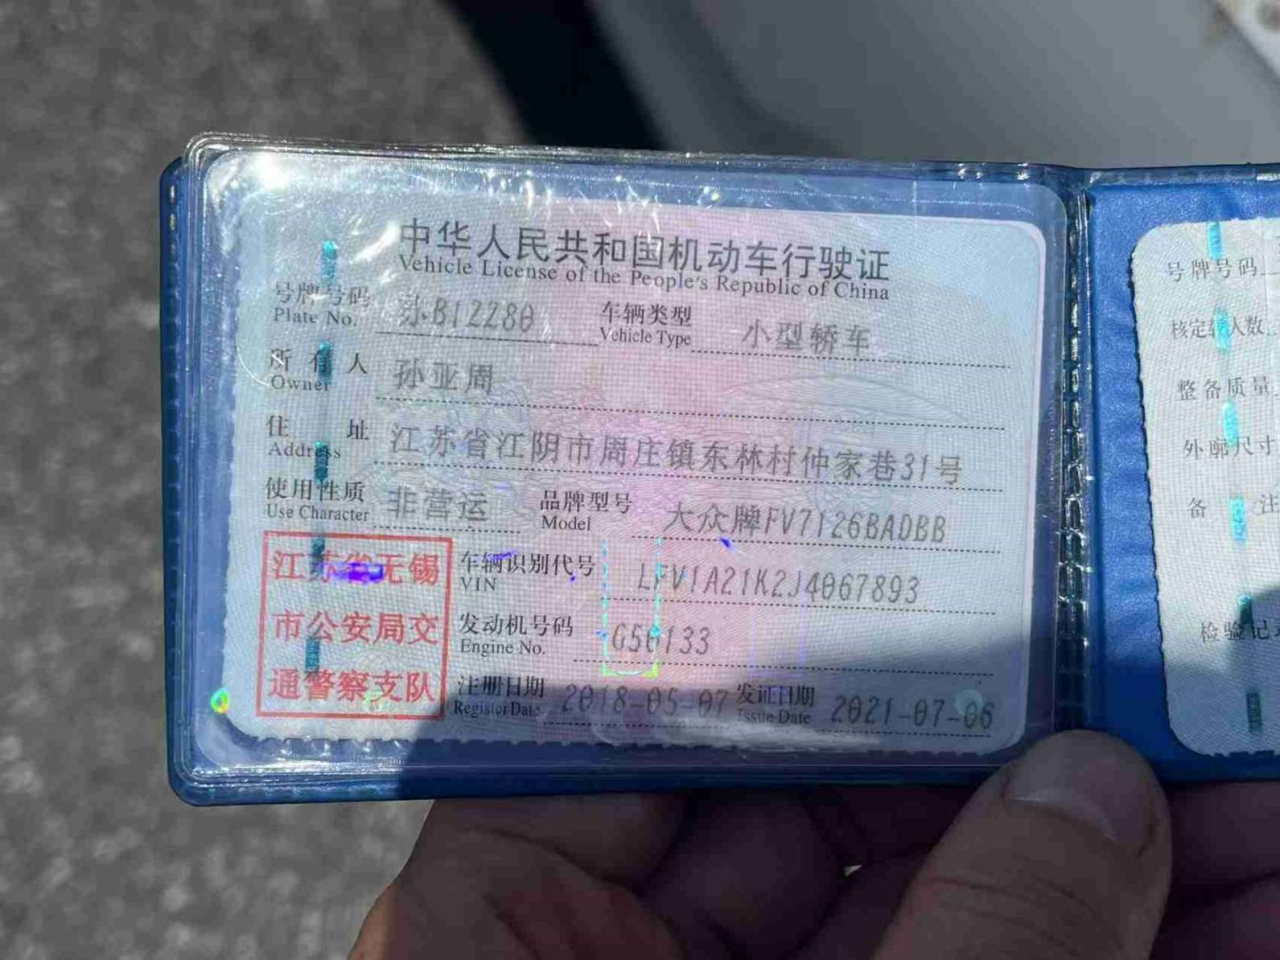 中华人民共和国机动车行驶证
Vehicle License of the People's Republic of China
号牌号码 苏B1ZZ80 车辆类型 小型轿车
Plate No. Vehicle Type
所有人 孙亚周
Owner
住址 江苏省江阴市周庄镇东林村仲家巷31号
Address
使用性质 非营运 品牌型号 大众牌FV7126BADBB
Use Character Model
车辆识别代号 LFV1A21K2J4067893
VIN
发动机号码 G56133
Engine No.
注册日期 2018-05-07 发证日期 2021-07-06
Register Date Issue Date
江苏省无锡
市公安局交
通警察支队
号牌号码
核定载人数
整备质量
外廓尺寸
备注
检验记